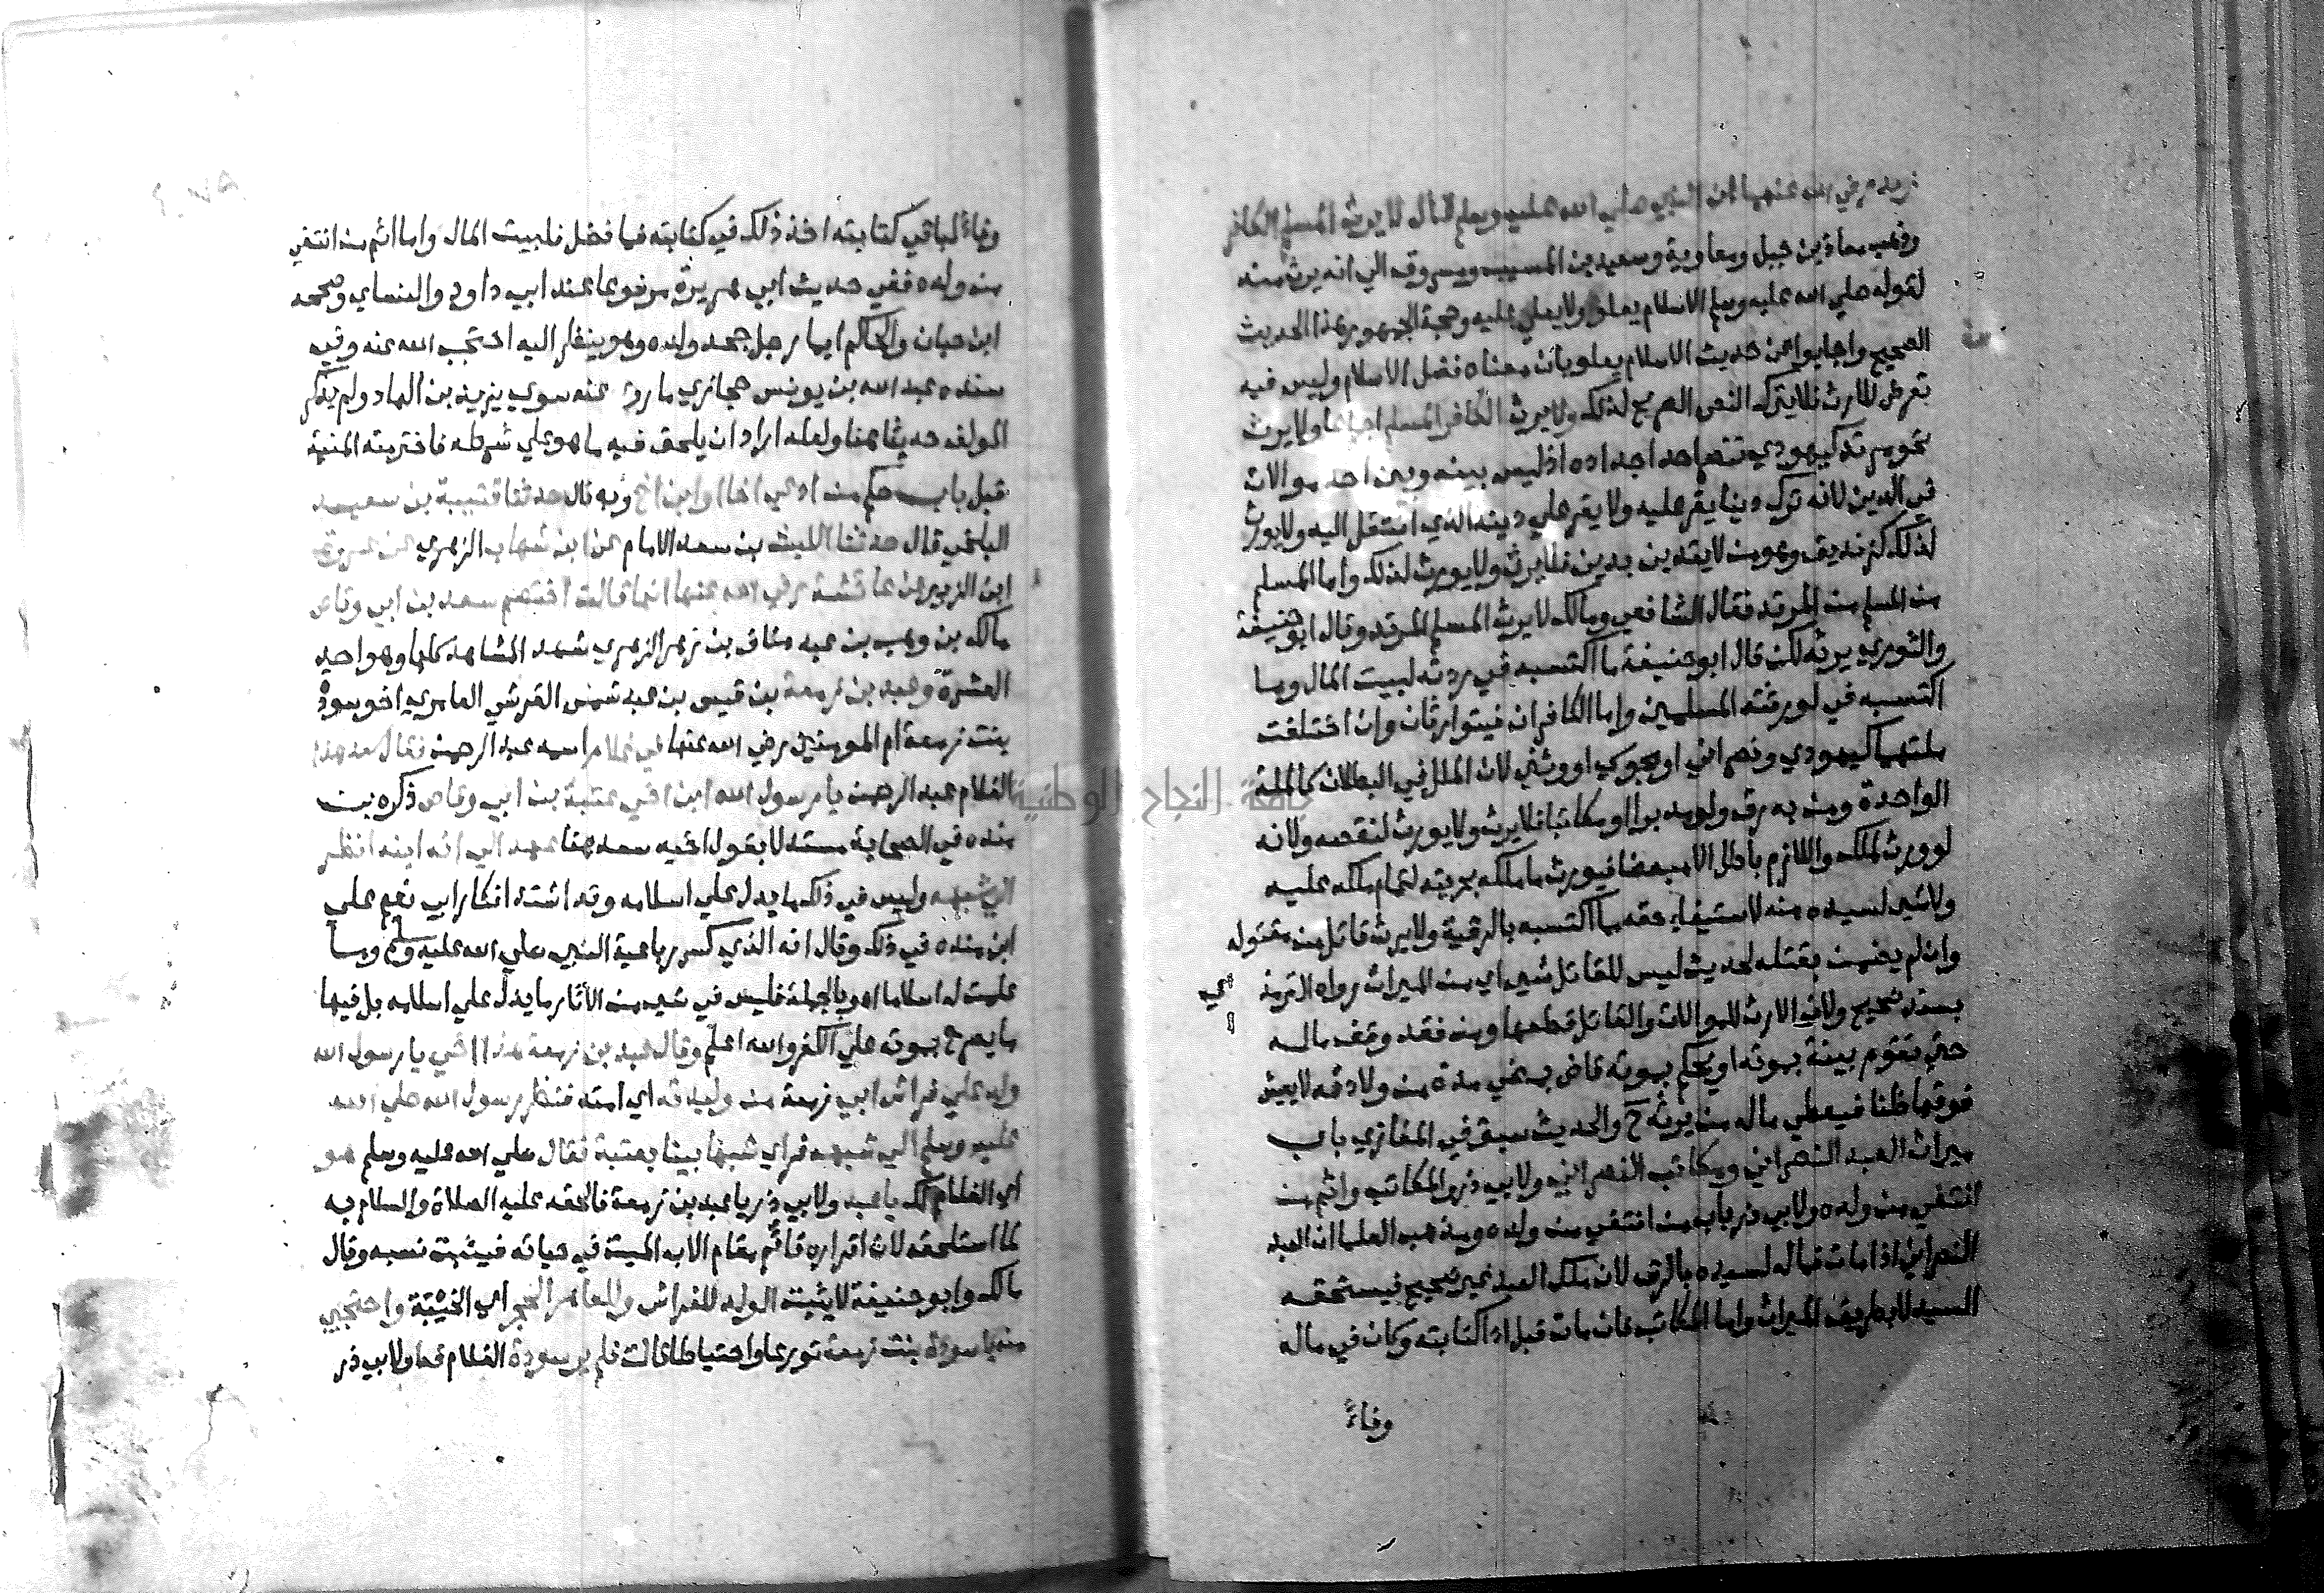 زيد رضي الله عنهما ان النبي صلي الله عليه وسلم قال لا يرث المسلم الكافر
وذهب معاذ بن جبل ومعاوية وسعيد بن المسيب ومسروق الي انه يرث منه
لقوله صلي الله عليه وسلم الاسلام يعلو ولا يعلي عليه وحجة الجمهور هذا الحديث
الصحيح واجابوا عن حديث الاسلام يعلو بان معناه فضل الاسلام وليس فيه
تعرض للارث فلا يترك النص الصريح لذلك ولا يرث الكافر المسلم اجماعا ولا يرث
نحو مرتد كيهودي تنصر احد اجداده اذ ليس بينه وبين احد موالات
في الدين لانه ترك دينا يقر عليه ولا يقر علي دينه الذي انتقل اليه ولا يورث
لذلك كزنديق وهو من لا يتدين بدين فلا يرث ولا يورث لذلك واما المسلم
من المسلم من المرتد فقال الشافعي ومالك لا يرث المسلم المرتد وقال ابو حنيفة
والثوري يرثه لكن قال ابو حنيفة ما اكتسبه في ردته لبيت المال وما
اكتسبه في لورثته المسلمين واما الكافران فيتوارثان وان اختلفت
ملتهما كيهودي ونصراني او مجوسي او وثني لان الملل في البطلان كالملة
الواحدة ومن به رق ولو مدبرا او مكاتبا فلا يرث ولا يورث لنقصه ولانه
لو ورث لملك واللازم باطل الا مبعضا فيورث ما ملكه بحريته لتمام ملكه عليه
ولا شي لسيده منه لاستيفاء حقه مما اكتسبه بالرقية ولا يرث قاتل من مقتوله
وان لم يضمن بقتله لحديث ليس للقاتل شي اي من الميراث رواه الترمذ
ي
بسند صحيح ولان الارث للموالات والقاتل قطعها ومن فقد وقف ماله
حتي تقوم بينة بموته او يحكم بموته قاض بمضي مدة من ولادته لا يعيش
فوقها ظنا فيعطي ماله من يرثه ح والحديث سبق في المغازي باب
ميراث العبد النصراني ومكاتب النصراني ولابي ذر والمكاتب واثم من
انتفي من ولده ولابي ذر باب من انتفي من ولده ومذهب العلما ان العبد
النصراني اذا مات فماله لسيده بالرق لان ملك العبد غير صحيح فيستحقه
السيد لا بطريق الميراث واما المكاتب فان مات قبل ادا كتابته وكان في ماله
وفاءً
وفاءً لباقي كتابته اخذ ذلك في كتابته فما فضل فلبيت المال واما اثم من انتفي
من ولده ففي حديث ابي هريرة مرفوعا عند ابي داود والنساي وصححه
ابن حبان والحاكم ايما رجل جحد ولده وهو ينظر اليه احتجب الله عنه وفي
سنده عبد الله بن يونس حجازي ما روا عنه سوي يزيد بن الهاد ولم يذكر
المولف حديثا هنا ولعله اراد ان يلحق فيه ما هو علي شرطه فاخترمته المنية
قبل باب حكم من ادعي اخا او ابن اخ وبه قال حدثنا قتيبة بن سعيد
البلخي قال حدثنا الليث بن سعد الامام عن ابن شهاب الزهري عن عروة
ابن الزبير عن عائشة رضي الله عنها انها قالت اختصم سعد بن ابي وقاص
مالك بن وهيب بن عبد مناف بن زهر الزهري شهد المشاهد كلها وهو احد
العشرة وعبد بن زمعة بن قيس بن عبد شمس القرشي العامري اخو سودة
بنت زمعة ام المومنين رضي الله عنها في غلام اسمه عبد الرحمن فقال سعد هذا
الغلام عبد الرحمن يا رسول الله ابن اخي عتبة بن ابي وقاص ذكره بن
منده في الصحابة مستدلا بقول اخيه سعد هنا عهد الي انه ابنه انظر
الي شبهه وليس في ذلك ما يدل علي اسلامه وقد اشتد انكار ابي نعيم علي
ابن منده في ذلك وقال انه الذي كسر رباعية النبي صلي الله عليه وسلم وما
علمت له اسلاما اهـ وبالجملة فليس في شي من الأثار ما يدل علي اسلامه بل فيها
ما يصرح بموته علي الكفر والله اعلم وقال عبد بن زمعة هذا اخي يا رسول الله
ولد علي فراش ابي زمعة من وليدته اي امته فنظر رسول الله صلي الله
عليه وسلم الي شبهه فراي شبها بينا بعتبة فقال صلي الله عليه وسلم هو
اي الغلام لك يا عبد ولابي ذر يا عبد بن زمعة فالحقه عليه الصلاة والسلام به
لما استلحقه لان اقراره قائم مقام الاب الميت في حياته فيثبت نسبه وقال
مالك وابو حنيفة لا يثبت الولد للفراش وللعاهر الحجر اي الخيبة واحتجبي
منه يا سودة بنت زمعة تورعا واحتياطا قالت فلم ير سودة الغلام قط ولابي ذر
جامعة النجاح الوطنية